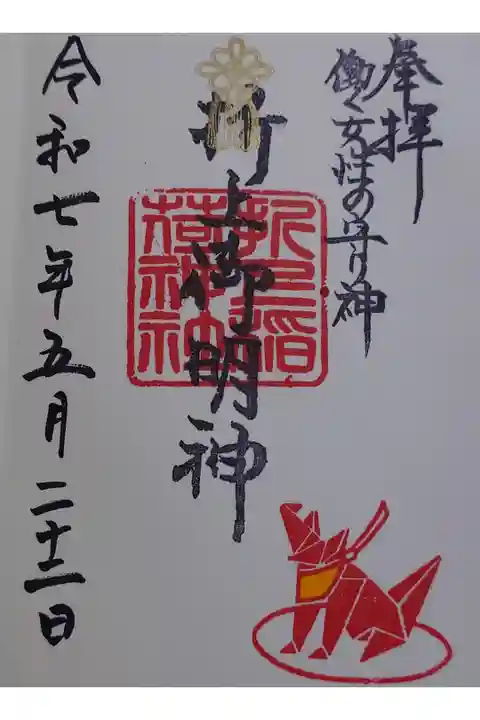 奉拝
働く女性の守り神
折上御明神
折上稲
荷神社
令和七年五月二十二日